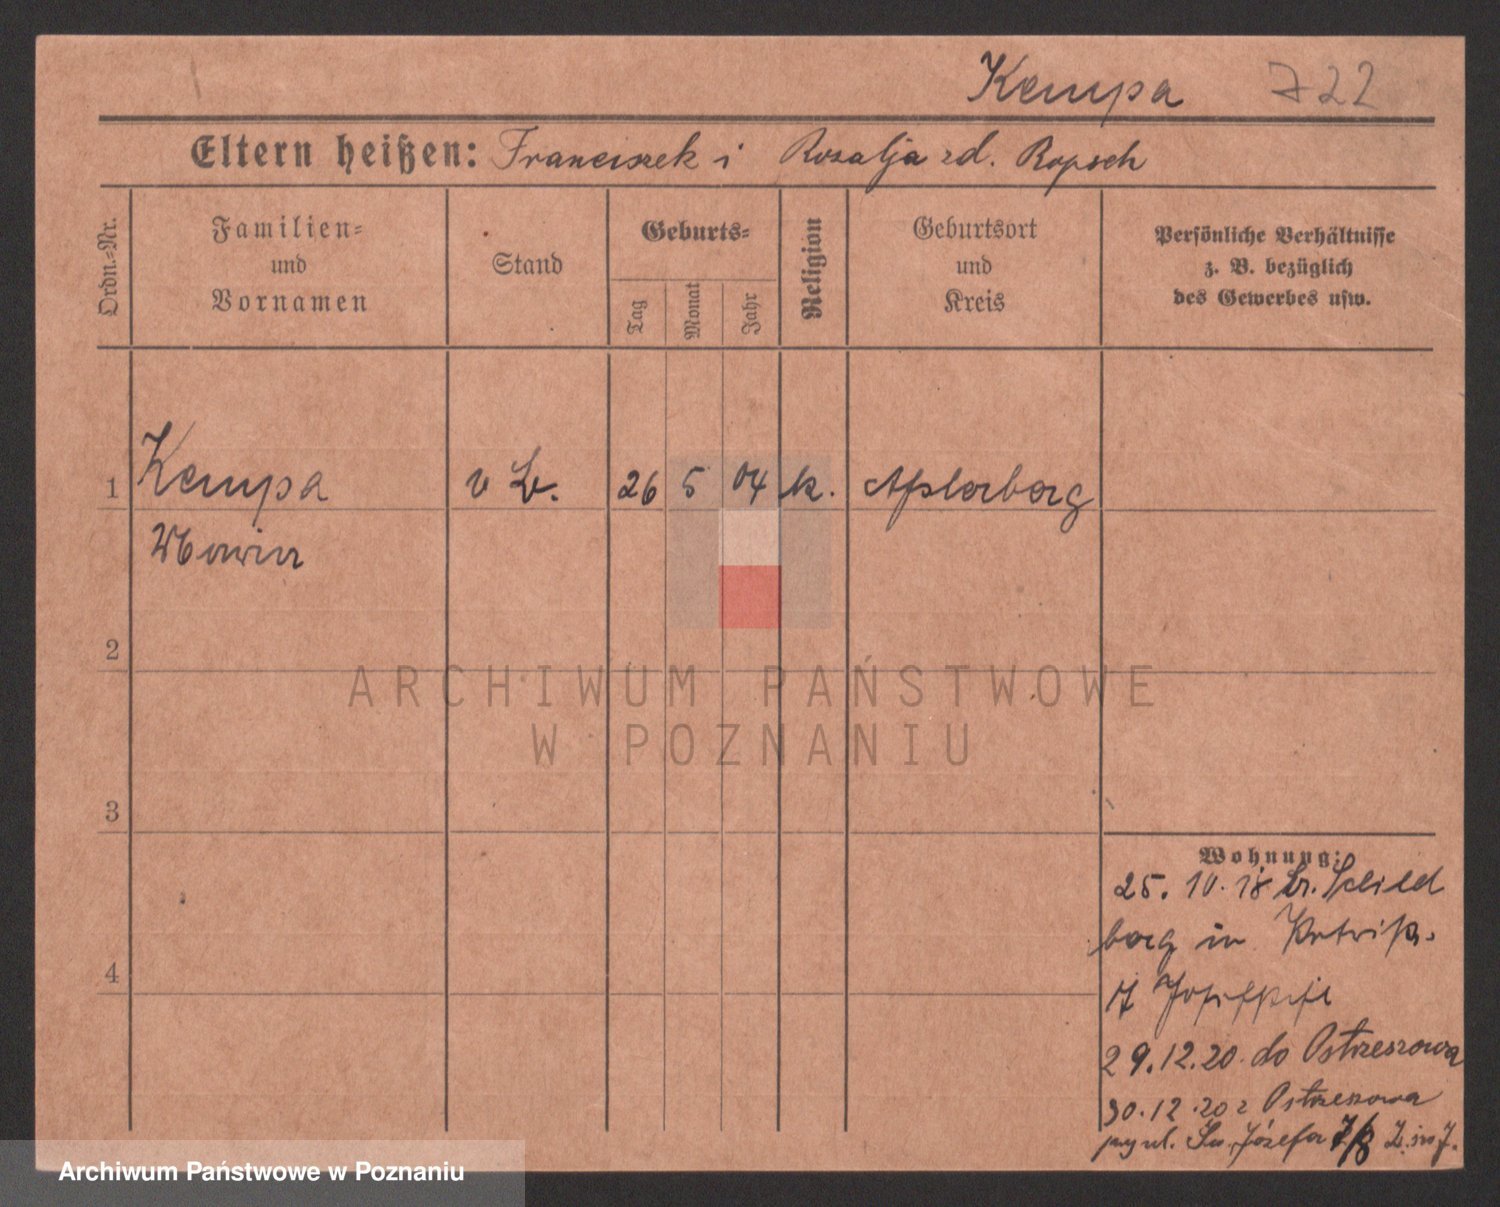 Kempa 722
Eltern heißen: Franciszek i Rozalja zd. Ropsch
Ordn.-Nr.
Familien-
und
Vornamen
Stand
Geburts-
Tag
Monat
Jahr
Religion
Geburtsort
und
Kreis
Persönliche Verhältnisse
z. B. bezüglich
des Gewerbes usw.
1 Kempa v 26 5 04 k. Aplerberg
2
3
4
Wohnung:
25. 10. 18 Kr. Schild
berg in
29.12.20. do Ostrzeszowa
30.12.20 z Ostrzeszowa
przy ul. Św. Józefa 7/8
ARCHIWUM PAŃSTWOWE
W POZNANIU
Archiwum Państwowe w Poznaniu